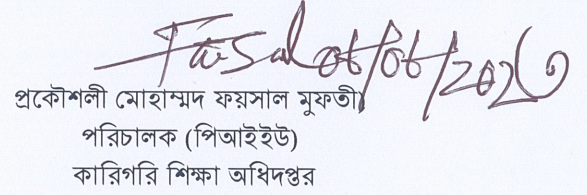 Faisal 06/06/202৩
প্রকৌশলী মোহাম্মদ ফয়সাল মুফতী
পরিচালক (পিআইইউ)
কারিগরি শিক্ষা অধিদপ্তর